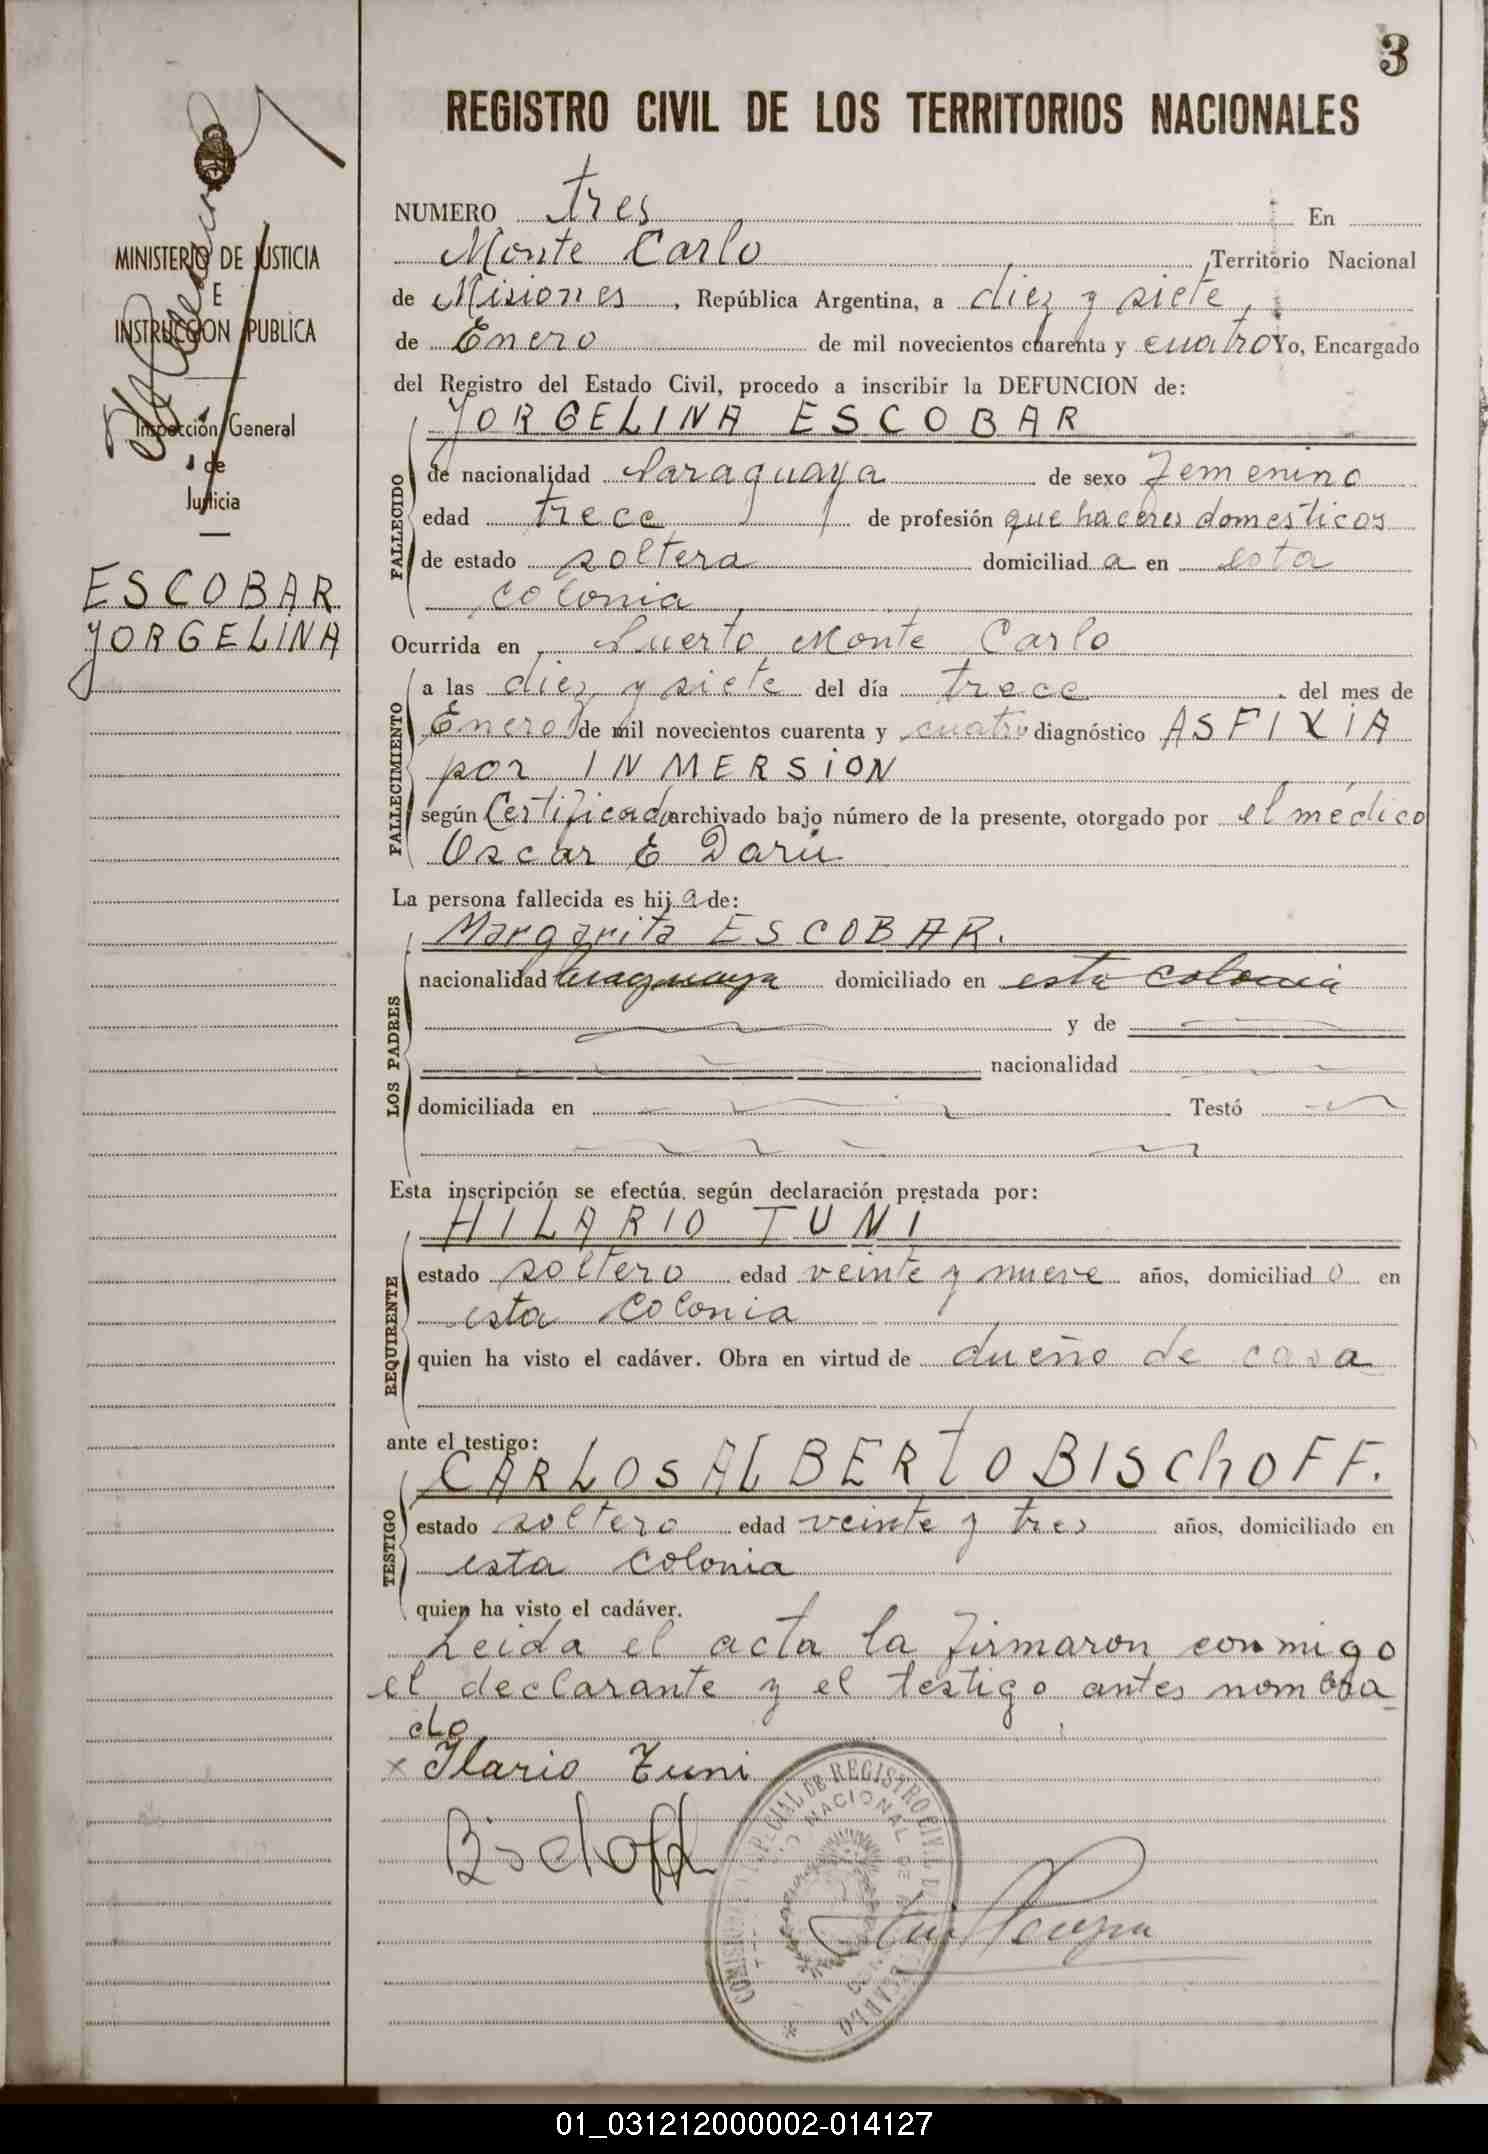 3
REGISTRO CIVIL DE LOS TERRITORIOS NACIONALES
MINISTERIO DE JUSTICIA
E
INSTRUCCION PUBLICA
Inspección General
de
Justicia
ESCOBAR
JORGELINA
NUMERO tres En
Monte Carlo Territorio Nacional
de Misiones, República Argentina, a diez y siete,
de Enero de mil novecientos cuarenta y cuatro Yo, Encargado
del Registro del Estado Civil, procedo a inscribir la DEFUNCION de:
JORGELINA ESCOBAR
FALLECIDO
de nacionalidad Paraguaya de sexo Femenino
edad trece de profesión que haceres domesticos
de estado soltera domiciliad a en esta
colonia
Ocurrida en Puerto Monte Carlo
FALLECIMIENTO
a las diez y siete del día trece del mes de
Enero de mil novecientos cuarenta y cuatro diagnóstico ASFIXIA
por INMERSION
según Certificado archivado bajo número de la presente, otorgado por el médico
Oscar E Darú
La persona fallecida es hij a de:
LOS PADRES
Margarita ESCOBAR.
nacionalidad domiciliado en esta colonia
y de
nacionalidad
domiciliada en Testó
Esta inscripción se efectúa según declaración prestada por:
REQUIRENTE
HILARIO TUNI
estado soltero edad veinte y nueve años, domiciliad o en
esta colonia
quien ha visto el cadáver. Obra en virtud de dueño de casa
ante el testigo:
TESTIGO
CARLOS ALBERTO BISCHOFF.
estado soltero edad veinte y tres años, domiciliado en
esta colonia
quien ha visto el cadáver.
Leida el acta la firmaron conmigo
el declarante y el testigo antes nombra
do
x Ilario Tuni
Bischoff
REGISTRO CIVIL
NACIONAL DE
01_031212000002-014127